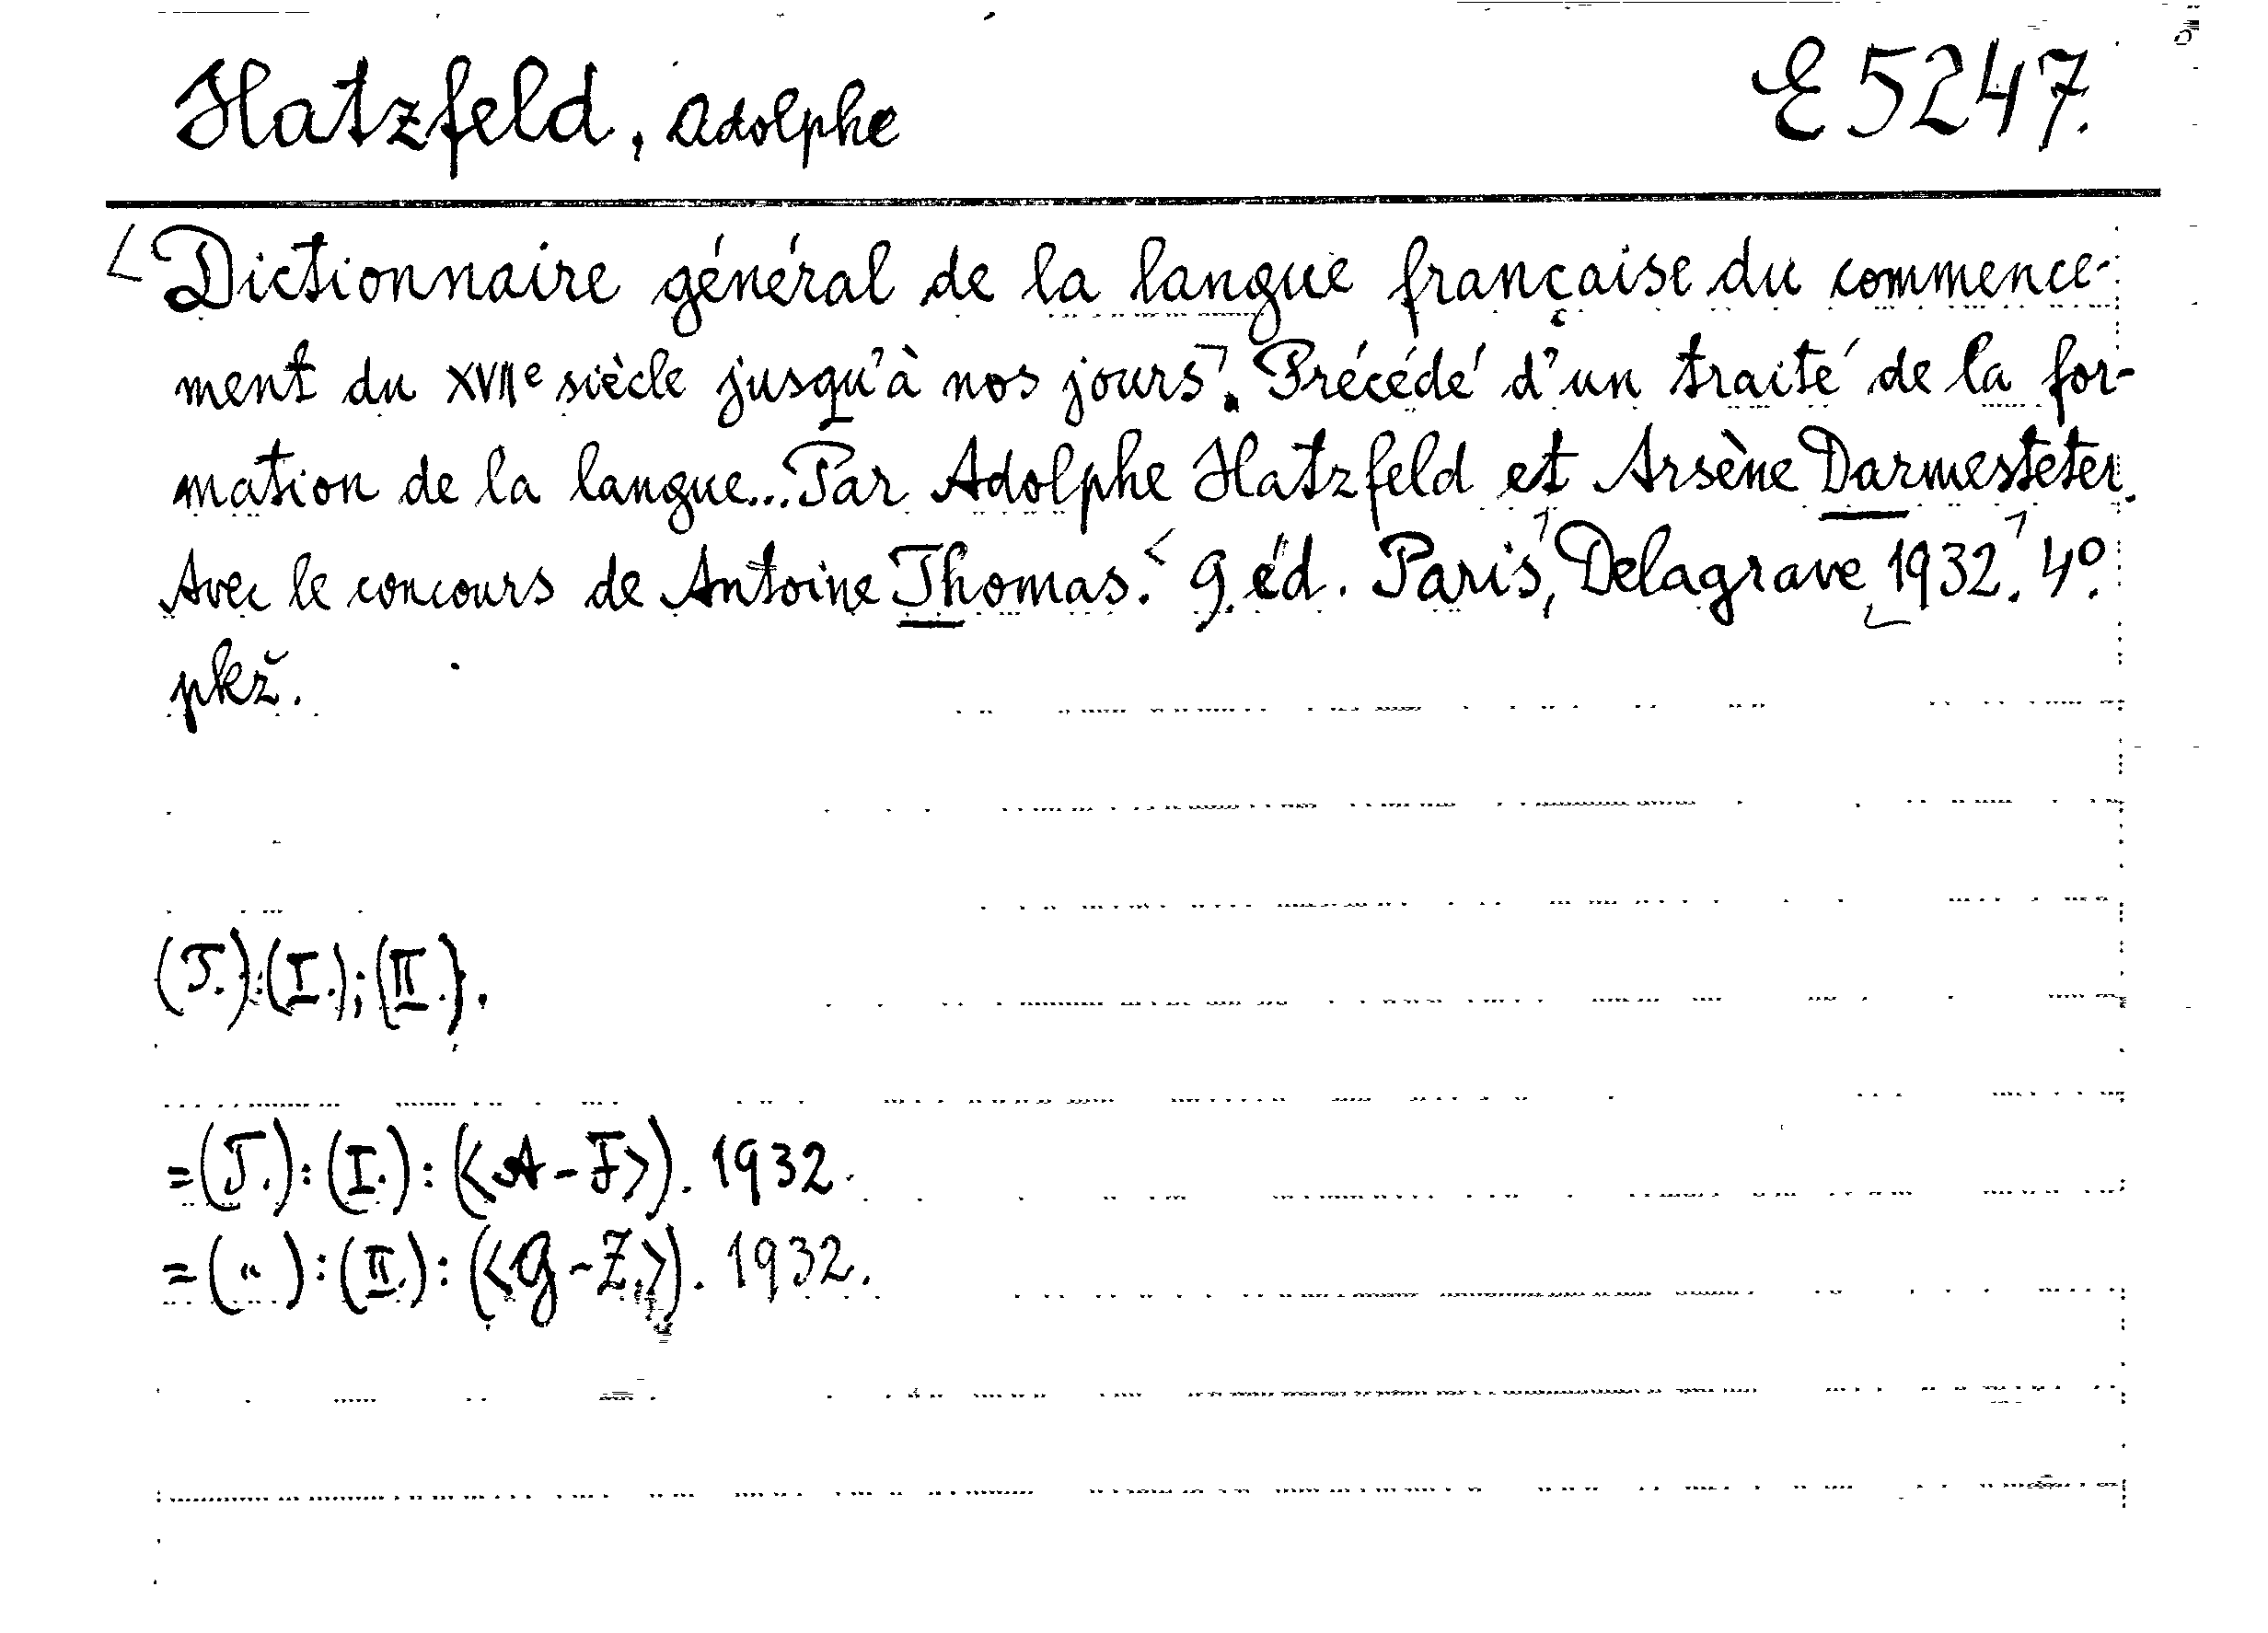 Hatzfeld, Adolphe E 5247.
Dictionnaire général de la langue française du commence-
ment du XVIIe siècle jusqu'à nos jours. Précédé d'un traité de la for-
mation de la langue... Par Adolphe Hatzfeld et Arsène Darmesteter.
Avec le concours de Antoine Thomas. 9. éd. Paris, Delagrave 1932. 4°.
pkž.
(T.):(I.);(II.).
=(T.):(I.):(<A-F>). 1932.
=("):(II.):(<G-Z.>). 1932.